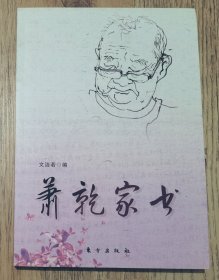 文洁若 编
萧乾家书
东方出版社